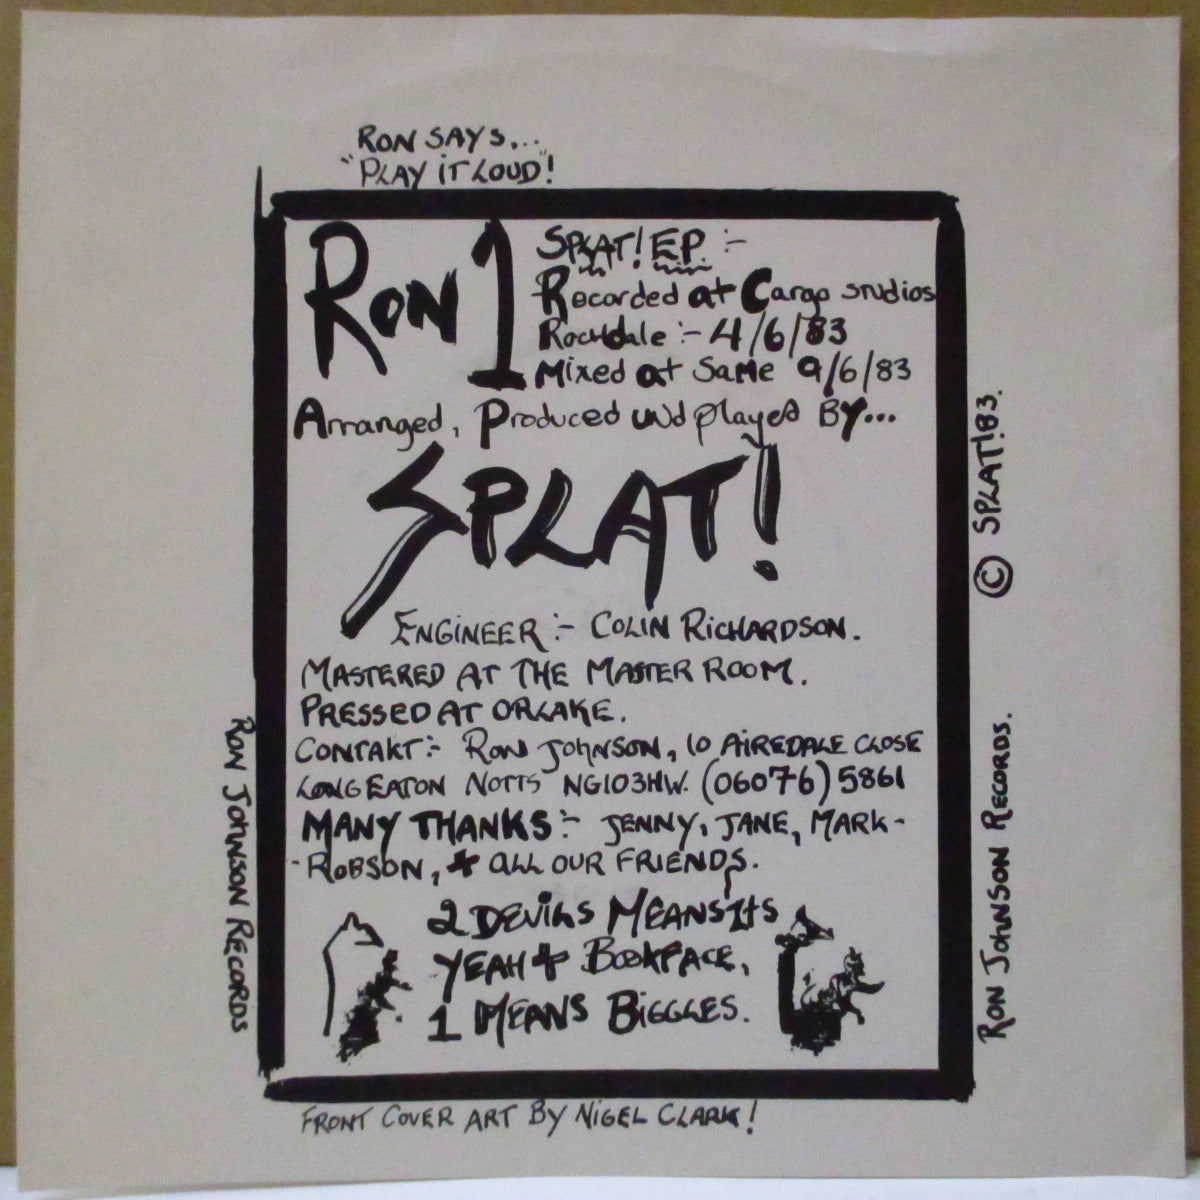 RON SAYS...
"PLAY IT LOUD"!
RON 1
SPLAT! EP. :-
Recorded at Cargo studios
Rochdale :- 4/6/83
Mixed at Same 9/6/83
Arranged, Produced und played BY...
SPLAT!
ENGINEER :- COLIN RICHARDSON.
MASTERED AT THE MASTER ROOM.
PRESSED AT ORLAKE.
CONTAKT :- RON JOHNSON, 10 AIREDALE CLOSE
LONG EATON NOTTS NG103HW. (06076) 5861
MANY THANKS :- JENNY, JANE, MARK-
-ROBSON, + ALL OUR FRIENDS.
2 DEVILS MEANS ITS
YEAH + BOOKFACE,
1 MEANS BIGGLES.
FRONT COVER ART BY NIGEL CLARK!
RON JOHNSON RECORDS
RON JOHNSON RECORDS. © SPLAT! 83.